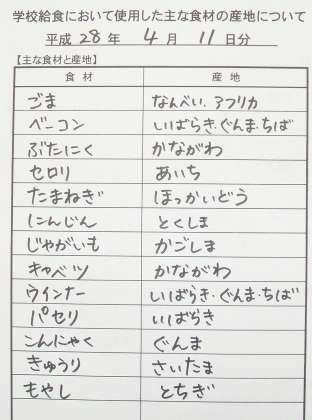 学校給食において使用した主な食材の産地について
平成 28 年 4 月 11 日分
【主な食材と産地】
食材 産地
ごま なんべい、アフリカ
ベーコン いばらき、ぐんま、ちば
ぶたにく かながわ
セロリ あいち
たまねぎ ほっかいどう
にんじん とくしま
じゃがいも かごしま
キャベツ かながわ
ウインナー いばらき、ぐんま、ちば
パセリ いばらき
こんにゃく ぐんま
きゅうり さいたま
もやし とちぎ